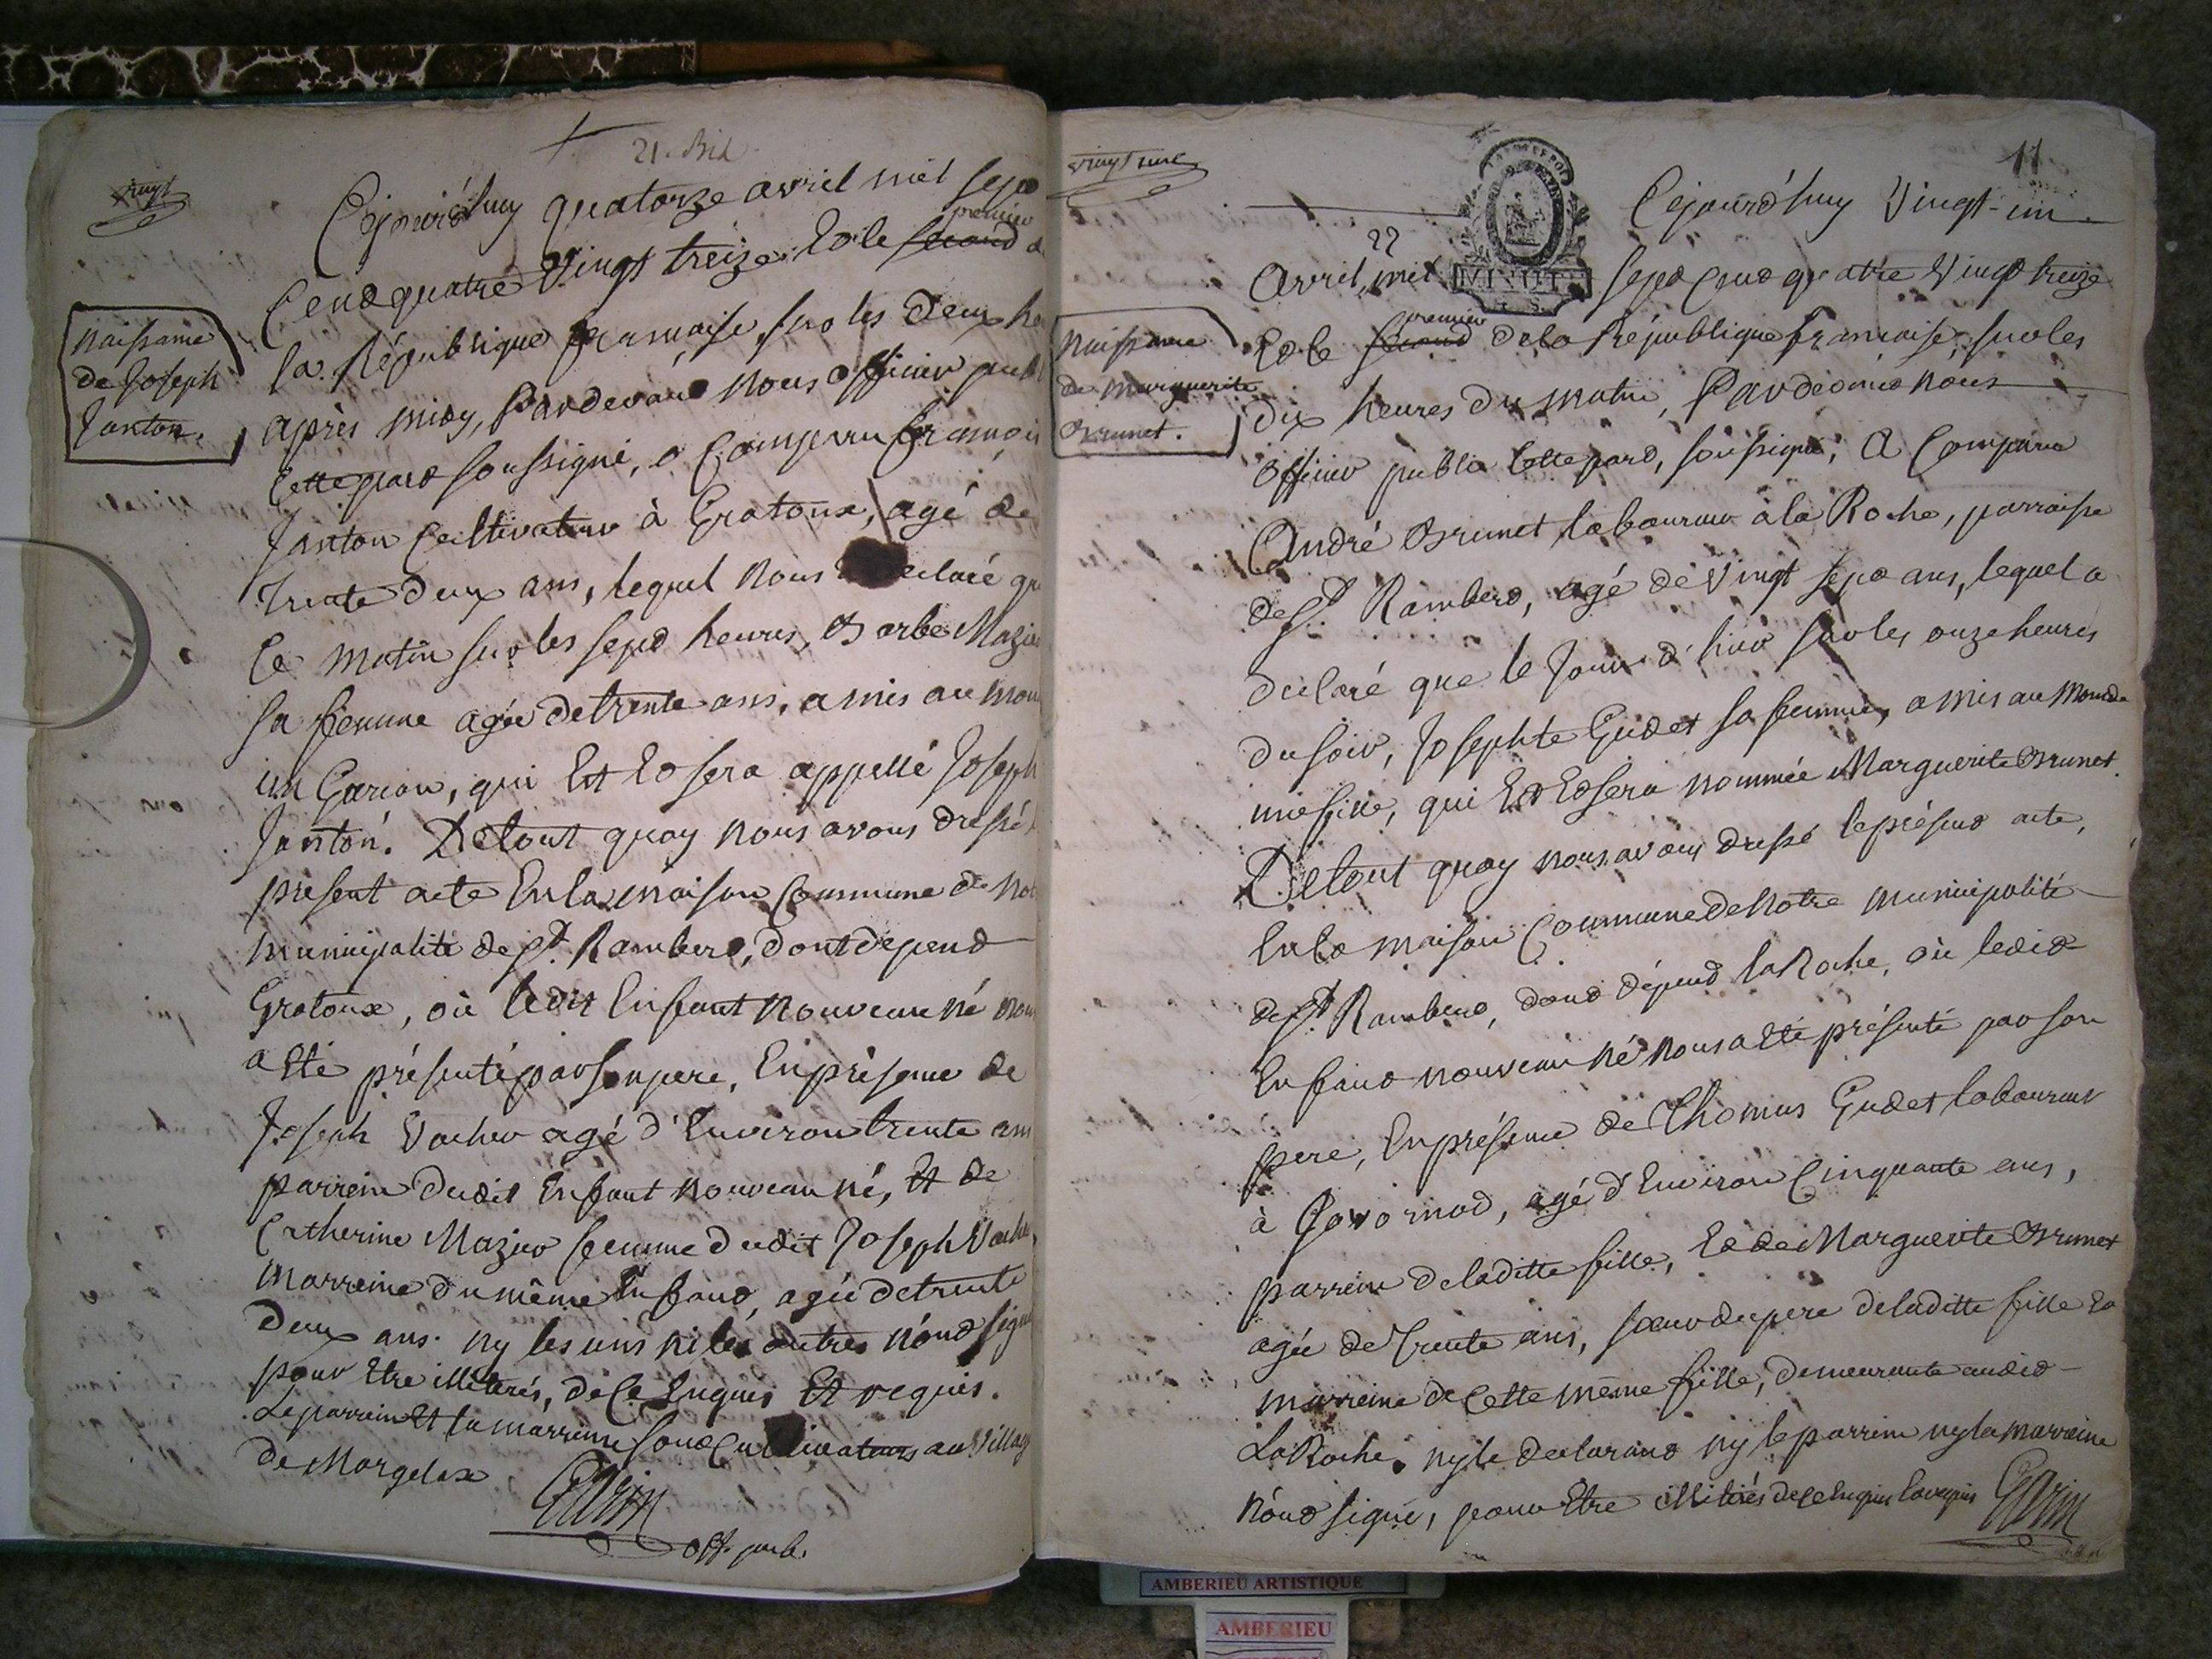 21. Bis
vingt
Cejourd'huy quatorze avril mil sept
premier
Cent quatre Vingt treize. Et le second de
la République francaise, sur les deux he
après midy, Pardevant nous officier publ
naissance
de Joseph
Janton.
Cette part soussigné, a Comparu françois
Janton Cultivateur à Gratoux, agé de
trente deux ans, lequel nous a declaré qu
ce matin sur les sept heures, Barbe Mazie
sa femme agée de trente ans, a mis au mon
un Garçon, qui Est Et sera appellé Joseph
Janton. De tout quoy nous avons dressé
présent acte En la maison Commune de not
municipalité de St. Rambert, dont dépend
Gratoux, où ledit Enfant nouveau né nous
a Eté présenté par son pere, En présence de
Joseph Vacher agé d'Environ trente ans
parrein dudit Enfant nouveau né, Et de
Catherine Mazier femme dudit Joseph Vacher
marreine du même Enfant, agée de trente
deux ans. ny les uns ni les autres n'ont signé
pour Etre illiterés, de Ce Enquis Et requis.
Le parrein Et la marreine sont Cultivateurs au Village
de Morgelax
Garin
off. pub.
11
vingt une
Cejourd'huy Vingt-un
22
avril, mil MINUTE sept Cent quatre Vingt treize
premier
Et le second de la République francaise, sur les
naissance
de marguerite
Brunet.
dix heures du matin, Pardevant nous
officier public Cette part, soussigné, a Comparu
André Brunet laboureur à la Roche, parroisse
de St. Rambert, agé de Vingt sept ans, lequel a
declaré que le jour d'hier sur les onze heures
du soir, Josephte Gudet sa femme, a mis au monde
une fille, qui Est Et sera nommée Marguerite Brunet.
De tout quoy nous avons dressé le présent acte,
En la maison Commune de Notre municipalité
de St. Rambert, dont dépend la Roche, où ledit
Enfant nouveau né nous a Eté présenté par son
pere, En présence de Thomas Gudet laboureur
à Javornod, agé d'Environ Cinquante ans,
parrein de laditte fille, Et de Marguerite Brunet
agée de trente ans, sœur du pere de laditte fille Et
marreine de Cette même fille, demeurante audit
La Roche. ny le declarant ny le parrein ny la marreine
n'ont signé, pour Etre illiterés de Ce Enquis Et requis Garin
AMBERIEU ARTISTIQUE
AMBERIEU